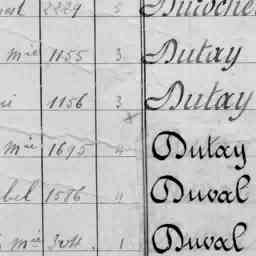 2229 5
mie 1155 3 Dutay
1156 3 Dutay
mie 1695 4 Dutay
bel 1586 4 Duval
mie 304. 1 Duval